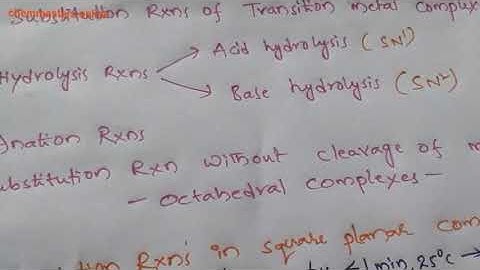 Substitution Rxns of Transition metal Complex
Hydrolysis Rxns
Acid hydrolysis (SN¹)
Base hydrolysis (SN²)
Anation Rxns
ubstitution Rxn without cleavage of m
- Octahedral complexes -
tion Rxn's in square planar com
<1 min, 25°C →